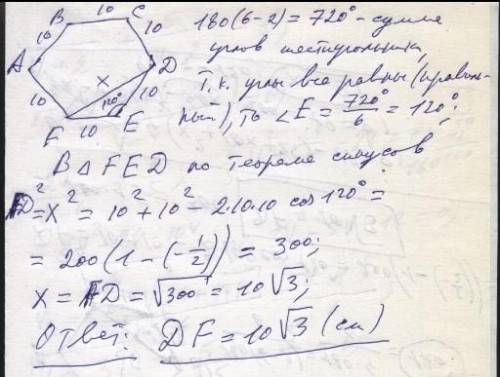 B 10 C
10 10
A D
x
10 120° 10
F 10 E
180(6-2) = 720° - сумма
углов шестиугольника,
Т.к. углы все равны (правиль-
ный), то ∠E = 720°/6 = 120°;
В △FED по теореме синусов
FD² = x² = 10² + 10² - 2·10·10 cos 120° =
= 200(1 - (-1/2)) = 300;
x = FD = √300 = 10√3;
Ответ: DF = 10√3 (см)